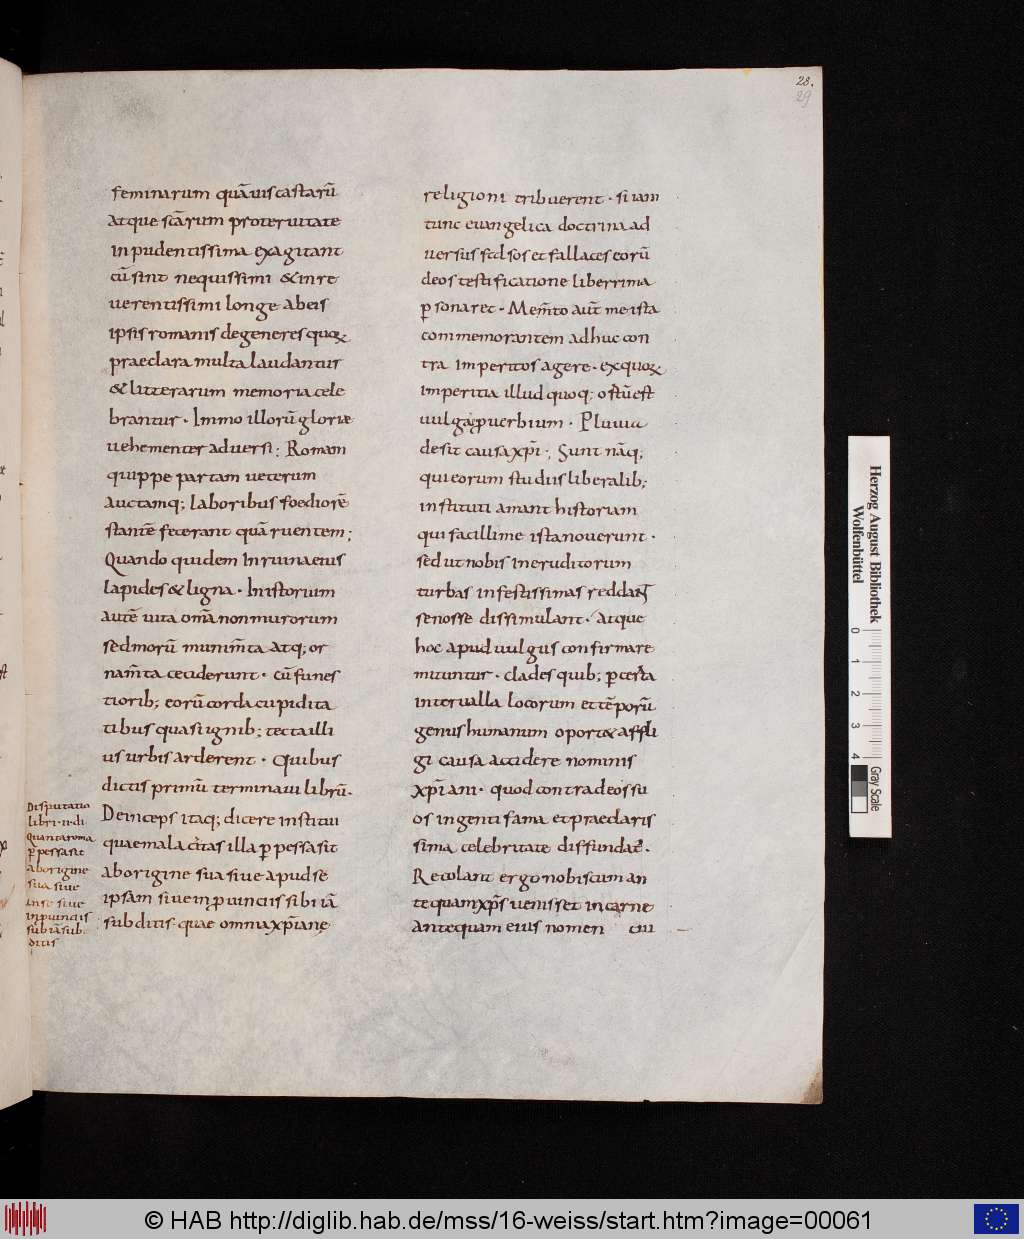 28.
29
feminarum quāuis castarū
atque scārum proteruitate
inpudentissima exagitant
cū sint nequissimi & inre
uerentissimi longe abeis
ipsis romanis degeneres quoꝝ
praeclara multa laudantur
& litterarum memoria cele
brantur · Immo illorū gloriae
uehementer aduersi; Romam
quippe partam ueterum
auctamq; laboribus foediorē
stantē fecerant quā ruentem;
Quando quidem Inruina eius
lapides & ligna · In istorum
autē uita om̄a non murorum
sed morū munim̄ta atq; or
nam̄ta ceciderunt · cū funes
tiorib; eorū corda cupidita
tibus quasi ignib; tecta illi
us urbis arderent · Quibus
dictis primū terminaui librū ·
Deinceps itaq; dicere institui
quae mala ciuitas illa ꝑpessa sit
aborigine sua siue apud se
ipsam siue inꝓuinciis sibi iā
subditis · quae omnia xp̄iane
Disputatio
libri · ii · di
Quanta roma
ꝑpessa sit
aborigine
sua siue
in se siue
inꝓuinciis
sub iā sub
ditis
religioni tribuerent · si iam
tunc euangelica doctrina ad
uersus falsos et fallaces eorū
deos testificatione liberrima
ꝑsonaret · Mem̄to aut̄ me ista
commemorantem adhuc con
tra imperitos agere · ex quoꝝ
imperitia illud quoq; ortū est
uulgare ꝓuerbium · Pluuia
desit causa xp̄i ·; Sunt nāq;
qui eorum studiis liberalib;
instituti amant historiam
qui facillime ista nouerunt ·
sed ut nobis ineruditorum
turbas infestissimas reddant
se nosse dissimulant · atque
hoc apud uulgus confirmare
nituntur · clades quib; ꝑ certa
interualla locorum et tēporū
genus humanum oport& affli
gi causa accidere nominis
xp̄iani · quod contra deos su
os ingenti fama et praeclaris
sima celebritate diffundat̄ ·
Recolant ergo nobiscum an
tequam xp̄s uenisset in carne
antequam eius nomen cui
Herzog August Bibliothek
Wolfenbüttel
0 1 2 3 4
Gray Scale
© HAB http://diglib.hab.de/mss/16-weiss/start.htm?image=00061